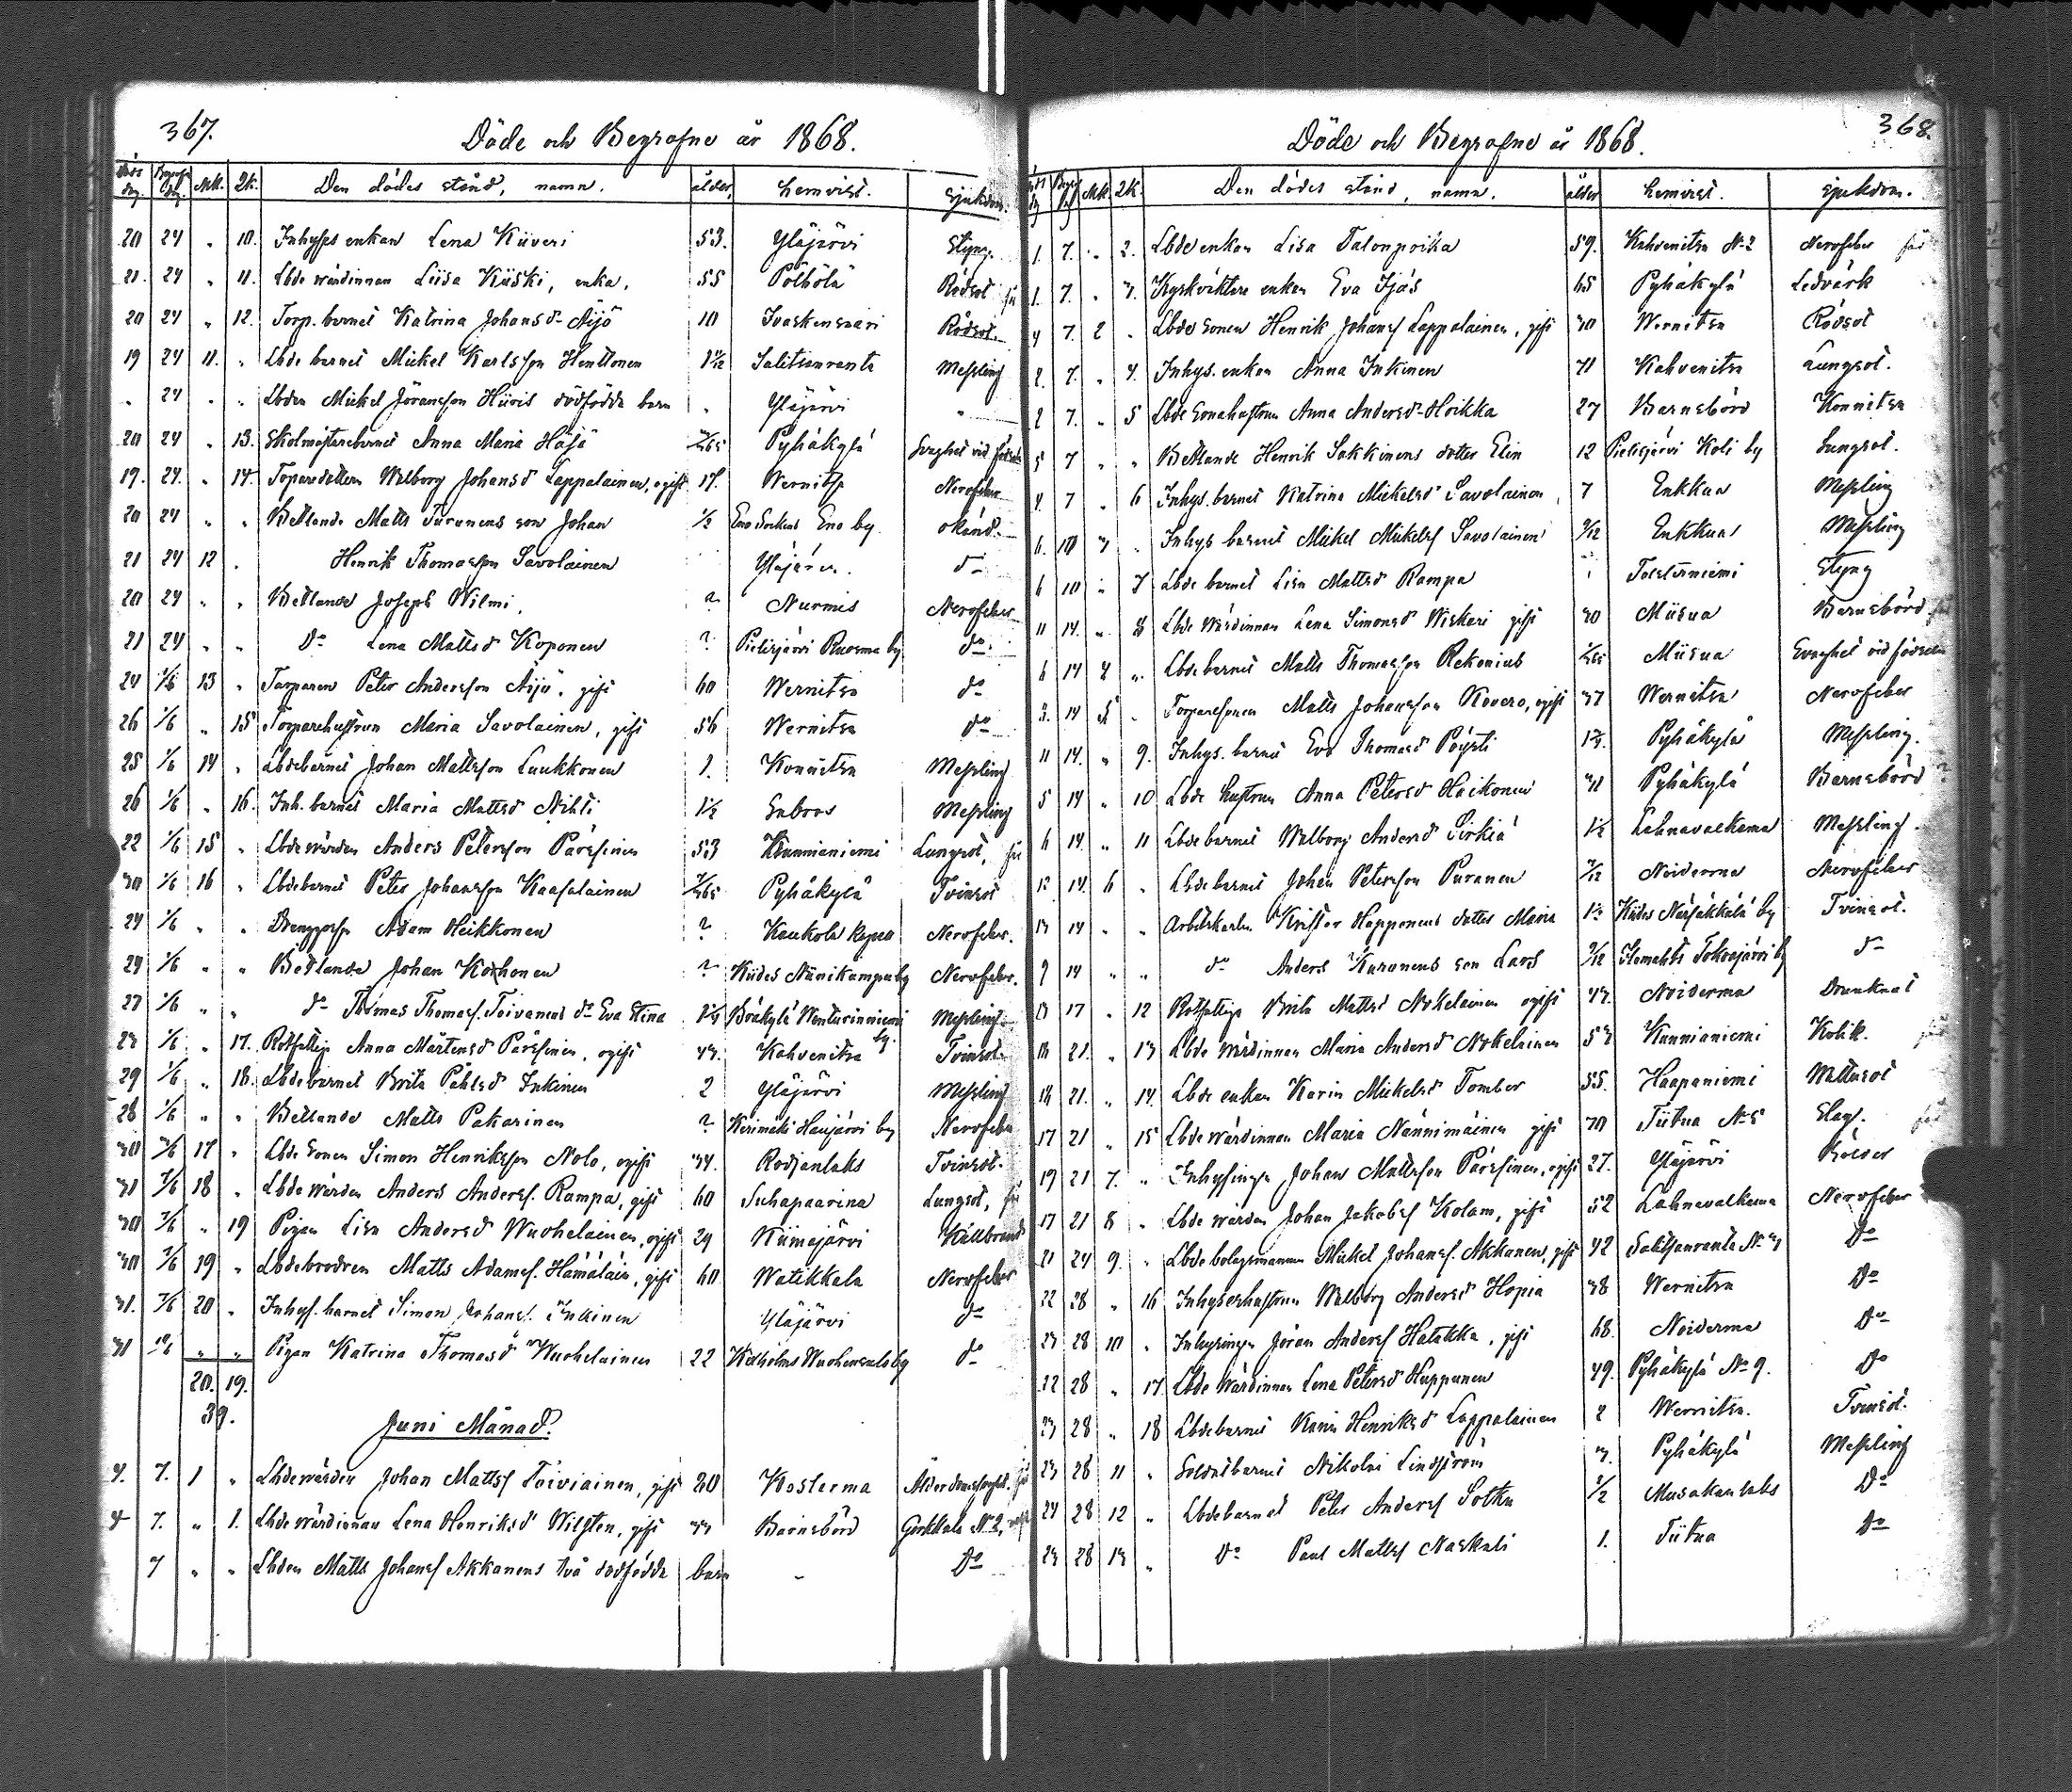 367.
Döde och Begrafne år 1868.
Mk. Qk. Den dödes stånd, namn. ålder. hemvist. Sjukdom.
20 24 " 10. Inhyses enkan Lena Kiiveri 53. Yläjärvi Styng.
21. 24 " 11. Lbde wärdinnan Liisa Kiiski, enka. 55 Pölhölä Rödsot
20 24 " 12. Torp. barnet Katrina Johansd:r Äijö 10 Ivaskensaari Rödsot.
19 24 11. " Lbde barnet Mickel Karlsson Henttonen Salitsanranta Messling
" 24 " " Lbden Mickel Jöransson Hiiris dödfödda barn " Yläjärvi "
20 24 " 13. Skolmästarebarnet Anna Maria Häjä Pyhäkylä Svaghet vid födseln
19. 24. " 14. Torparedottern Walborg Johansd Lappalainen, ogift 17. Wernits Nervfeber
20 24 " " Betlande Matts Turunens son Johan 1/2 Eno Socken Eno by okänd.
21 24 12 . Henrik Thomasson Savolainen Yläjärvi d:o
20 24 " " Betlande Joseph Wilmi. ? Nurmis Nervfeber
21 24 " " D:o Lena Mattsd Koponen ? Pielisjärvi Ruosma by d:o
24 1/6 13 " Torparen Peter Andersson Äijö, gift 60 Wernitsa d:o
26 1/6 " 15 Torparehustrun Maria Savolainen, gift 56 Wernitsa d:o
25 1/6 14 " Lbdebarnet Johan Mattsson Luukkonen 1. Konnitsa Messling
26 1/6 " 16. Inh. barnet Maria Mattsd Nihti 1½ Sutoos Messling
22 1/6 15 " Lbdewärden Anders Petersson Pärssinen 53 Kunnianiemi Lungsot,
30 1/6 16 " Lbdebarnet Peter Johansson Kaasalainen Pyhäkylä Tvinsot
24 1/6 " " Drengen Adam Heikkonen ? Kaukola Nervfeber.
24 1/6 " " Betlande Johan Korhonen ? Kides Närikampa by Nervfeber.
27 1/6 " " d:o Thomas Thomass. Toivanens d:r Eva Stina Bräkylä Wenturinniemi by. Messling
23 1/6 " 17. Rotfattig Anna Mårtensd Pärssinen, ogift 43. Kahvenitsa Tvinsot.
29 1/6 " 18. Lbdebarnet Brita Påhlsd Inkinen 2 Yläjärvi Messling
28 1/6 " " Betlande Matts Pakarinen ? Kerimäki Haujärvi by Nervfeber
30 7/6 17 " Lbde Sonen Simon Henriksson Nolo, ogift 34. Rodjanlaks Tvinsot.
31 7/6 18 " Lbde wärden Anders Anderss. Rampa, gift 60 Suhapaarina Lungsot,
30 7/6 " 19 Pigan Lisa Andersd Wuohelainen, ogift 24 Kiimajärvi Kallbrand
30 7/6 19 " Lbdebrodren Matts Adamss. Hämäläin, gift 60 Watikkala Nervfeber
31. 7/6 20 " Inhys. barnet Simon Johanss. Inkinen Yläjärvi d:o
31 " " Pigan Katrina Thomasd Wuohelainen 22 Kexholms Wuohensalo by d:o
20. 19.
39.
Juni Månad.
4. 7. 1 " Lbdewärden Johan Mattss Toiviainen, gift 80 Kosterma Ålderdomssvaghet.
4 7. " 1. Lbde wärdinnan Lena Henriksd Wilsten, gift 33 Barnsbörd Gorkkala N:2,
7 " " Lbden Matts Johanss Akkanens två dödfödda barn " D:o
368.
Döde och Begrafne år 1868.
Mk. Qk. Den dödes stånd, namn. ålder hemvist. Sjukdom.
1. 7. " 2. Lbde enkan Lisa Talonpoika 59. Kahvenitsa N:2 Nervfeber
1. 7. " 3. Kyrkväktare enkan Eva Ijäs 65 Pyhäkylä Ledvärk
4 7. 2 " Lbde sonen Henrik Johanss Lappalainen, gift 30 Wernitsa Rödsot
2. 7. " 4. Inhys. enkan Anna Inkinen 71 Kahvenitsa Lungsot.
2 7. " 5 Lbde Sonahustrun Anna Andersd:r Hoikka 27 Barnsbörd Konnitsa
5 7 " " Betlande Henrik Sakkinens dotter Elin 12 Pielisjärvi Koli by Lungsot.
4. 7 " 6 Inhys. barnet Katrina Mickelsd Savolainen, 7 Enkkua Messling
6. 10 3 " Inhys barnet Mickel Mickelss Savolainen 9/12 Enkkua Messling
6 10 " 7 Lbde barnet Lisa Mattsd Rampa Tolstoiniemi Styng
11 14. " 8 Lbde Wärdinnan Lena Simonsd Wiskari gift 30 Miisua Barnsbörd
6 14 4 " Lbde barnet Matts Thomasson Rekonius Miisua Svaghet vid födseln
3. 14 5 " Torparesonen Matts Johansson Kovero, ogift 37 Wernitsa Nervfeber
11 14. " 9. Inhys. barnet Eva Thomasd Pöysti Pyhäkylä Messling.
5 14 " 10 Lbde hustrun Anna Petersd Hoikonen 41 Pyhäkylä Barnsbörd
6 14. " 11 Lbde barnet Walborg Andersd Sirkiä 1½ Lahnavalkama Messling.
12 14. 6 " Lbde barnet Johan Petersson Puranen Noiderma Nervfeber
13 14 " " Arbetskarlen Krister Happonens dotter Maria Kides Närsäkkälä by Tvinsot.
9 14 " " d:o Anders Kuronens son Lars 9/12 Ilomants Tokrajärvi by d:o
13 17 " 12 Rotfattiga Brita Mattsd Nokelainen ogift 43. Noiderma Drunknat
18 21. " 13 Lbde Wärdinnan Maria Andersd Nokelainen 53 Kunnianiemi Kolik.
18 21. " 14. Lbde enkan Karin Mickelsd Tomber 55. Haapaniemi Wattusot
17 21 " 15 Lbde wärdinnan Maria Nännimäinen gift 70 Tiitua N:5 Slag.
19 21 7. " Inhysingen Johan Mattsson Pärssinen, ogift 27. Yläjärvi
17 21 8 " Lbde wärden Johan Jakobss Kolam, gift 52 Lahnavalkama Nervfeber
21 24 9. " Lbde bolagsmannen Mickel Johanss. Akkanen, gift 42 Salitsanranta N:3 D:o
22 28 " 16 Inhyseshustrun Walborg Andersd Hopia 38 Wernitsa D:o
23 28 10 " Inhysingen Jöran Anderss Hatakka, gift 68. Noiderma D:o
22 28 " 17 Lbde Wärdinnan Lena Petersd Huppunen 49. Pyhäkylä N:o 9. D:o
23 28 " 18 Lbdebarnet Karin Henriksd Lappalainen 2 Wernitsa. Tvinsot.
23 28 11 " Soldatbarnet Nikolai Lindström 3. Pyhäkylä Messling
24 28 12 " Lbdebarnet Peter Anderss Sotka 1/2 Musakanlaks D:o
23 28 13 " D:o Paul Mattss Naskali 1. Tiitua D:o